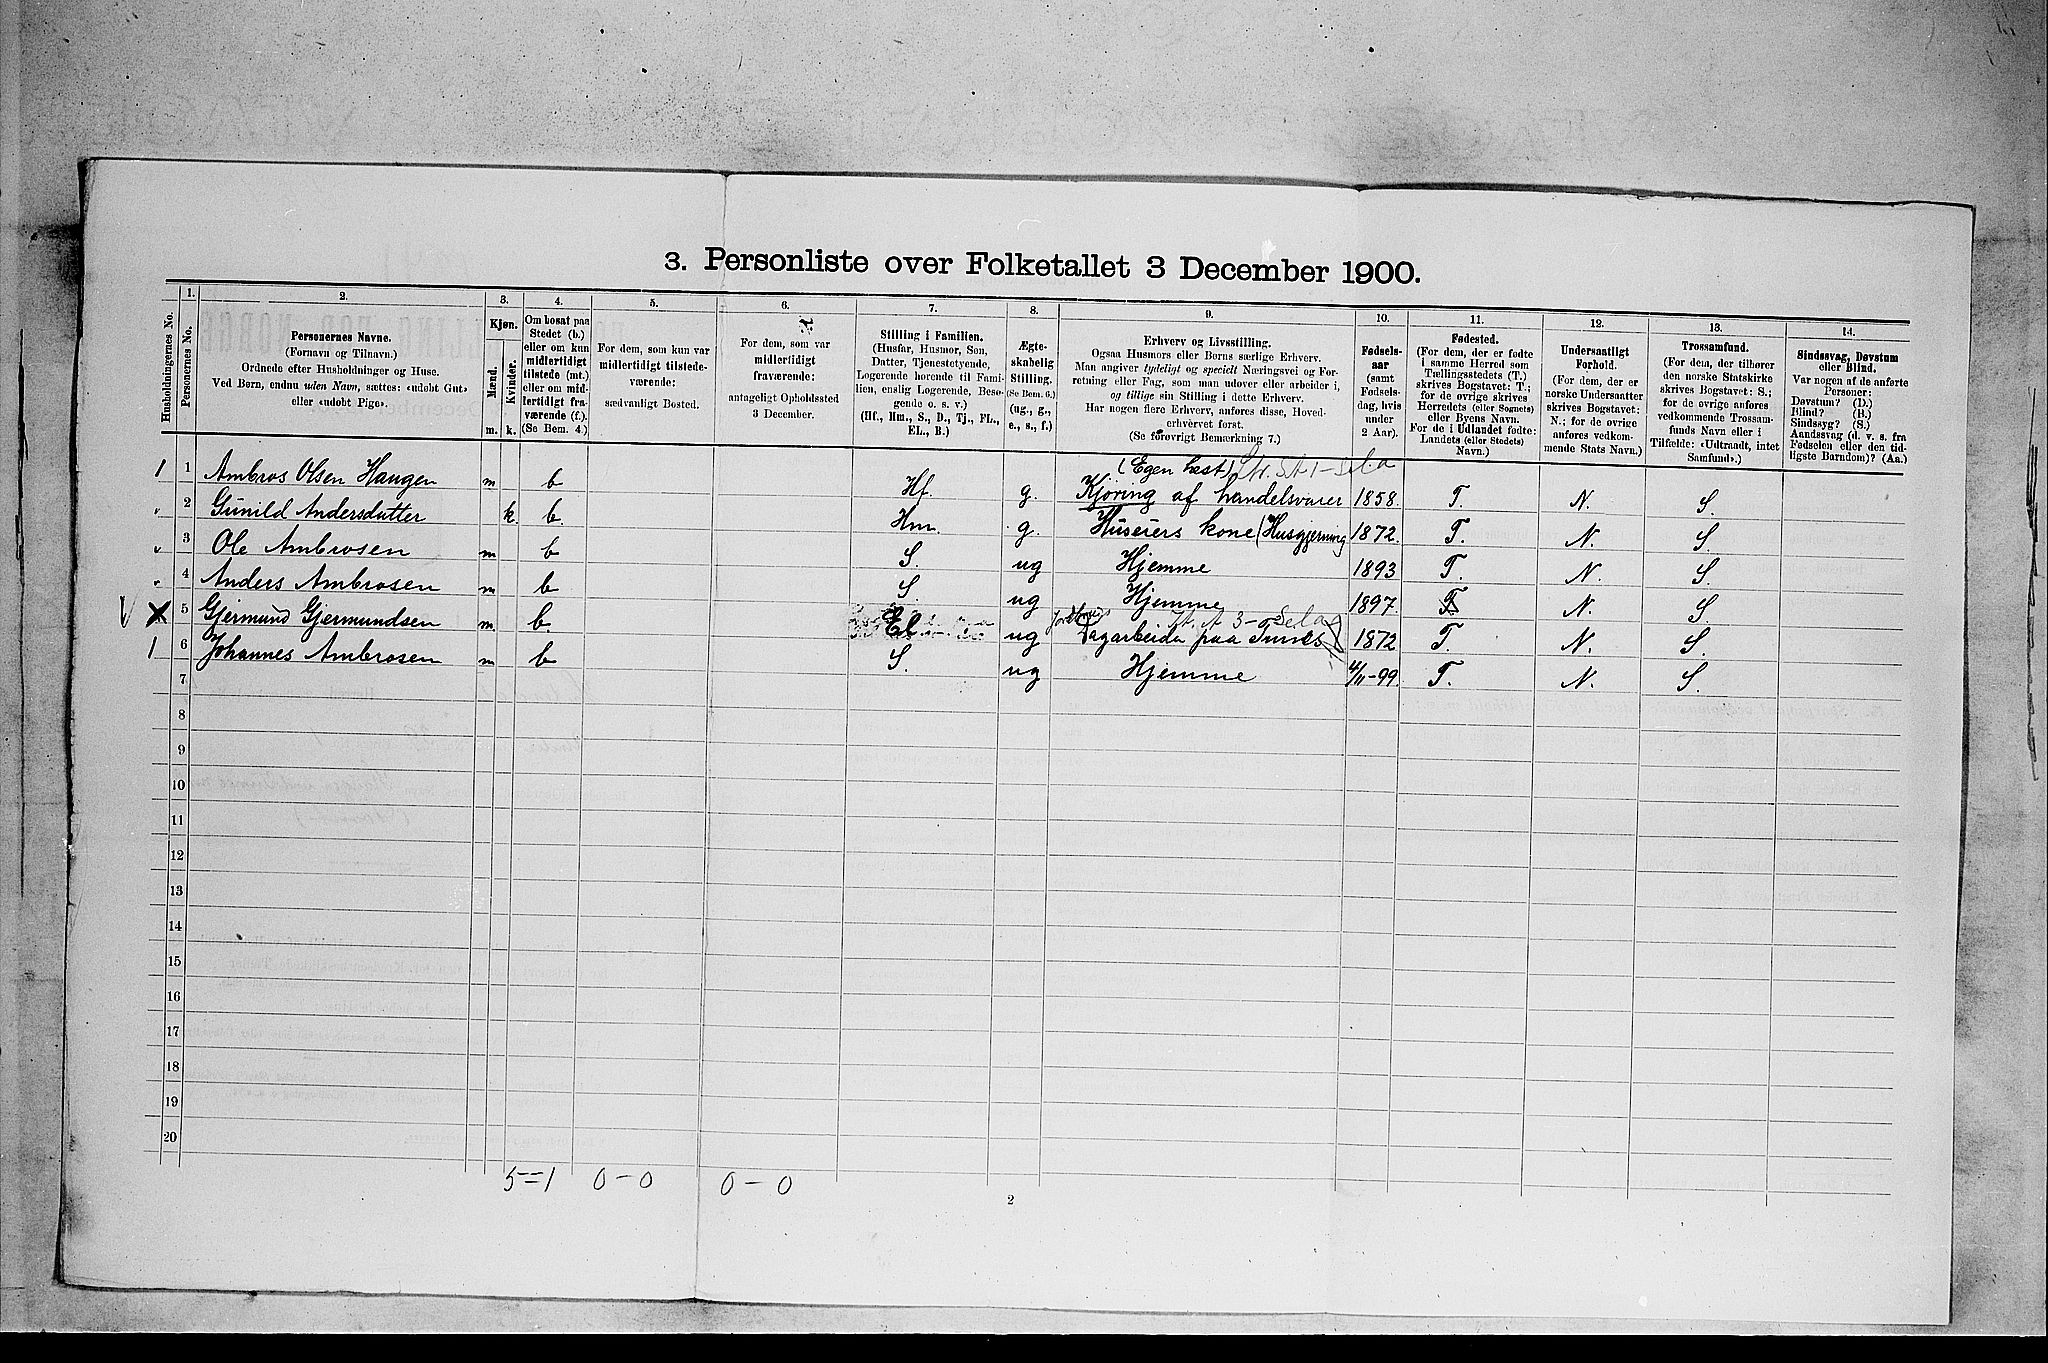 3. Personliste over Folketallet 3 December 1900.
Husholdningernes No.
1.
Personernes No.
2.
Personernes Navne.
(Fornavn og Tilnavn.)
Ordnede efter Husholdninger og Huse.
Ved Børn, endnu uden Navn, sættes: «udøbt Gut»
eller «udøbt Pige».
3.
Kjøn.
Mænd.
Kvinder.
m. k.
4.
Om bosat paa
Stedet (b.)
eller om kun
midlertidigt
tilstede (mt.)
eller om mid-
lertidigt fra-
værende (f.).
(Se Bem. 4.)
5.
For dem, som kun var
midlertidigt tilstede-
værende:
sædvanligt Bosted.
6.
For dem, som var
midlertidigt
fraværende:
antageligt Opholdssted
3 December.
7.
Stilling i Familien.
(Husfar, Husmor, Søn,
Datter, Tjenestetyende,
Logerende hørende til Fami-
lien, enslig Logerende, Besø-
gende o. s. v.)
(Hf., Hm., S., D., Tj., FL.,
EL., B.)
8.
Ægte-
skabelig
Stilling.
(Se Bem. 6.)
(ug., g.,
e., s., f.)
9.
Erhverv og Livsstilling.
Ogsaa Husmors eller Børns særlige Erhverv.
Man angiver tydeligt og specielt Næringsvei og For-
retning eller Fag, som man udøver eller arbeider i,
og tillige sin Stilling i dette Erhverv.
Har nogen flere Erhverv, anføres disse, Hoved-
erhvervet først.
(Se forøvrigt Bemærkning 7.)
10.
Fødsels-
aar
(samt
Fødsels-
dag, hvis
under
2 Aar).
11.
Fødested.
(For dem, der er fødte
i samme Herred som
Tællingsstedets (T.)
skrives Bogstavet: T.;
for de øvrige skrives
Herredets (eller Sognets)
eller Byens Navn.
For de i Udlandet fødte:
Landets (eller Stedets)
Navn.)
12.
Undersaatligt
Forhold.
(For dem, der er
norske Undersaatter
skrives Bogstavet:
N.; for de øvrige
anføres vedkom-
mende Stats Navn.)
13.
Trossamfund.
(For dem, der tilhører
den norske Statskirke
skrives Bogstavet: S.;
for de øvrige anføres
vedkommende Trossam-
funds Navn eller i
Tilfælde: «Udtraadt, intet
Samfund».)
14.
Sindssvag, Døvstum
eller Blind.
Var nogen af de anførte
Personer:
Døvstum? (D.)
Blind? (B.)
Sindssyg? (S.)
Aandssvag (d. v. s. fra
Fødselen eller den tid-
ligste Barndom)? (Aa.)
1 1 Ambros Olsen Haugen m b Hf. g. (Egen hest) Kjøring af handelsvarer 1858. T. N. S.
2 Gunild Andersdatter k. b. Hm. g. Huseiers kone (Husgjerning) 1872. T. N. S.
3 Ole Ambrosen m b S. ug Hjemme 1893 T. N. S.
4 Anders Ambrosen m b S. ug Hjemme 1897. T. N. S.
5 Gjermund Gjermundsen m. b. El ug Dagarbeider paa 1872 T. N. S.
1 6 Johannes Ambrosen m b S. ug Hjemme 4/11-99. T. N. S.
7
8
9
10
11
12
13
14
15
16
17
18
19
20
5=1 0-0 0-0
2